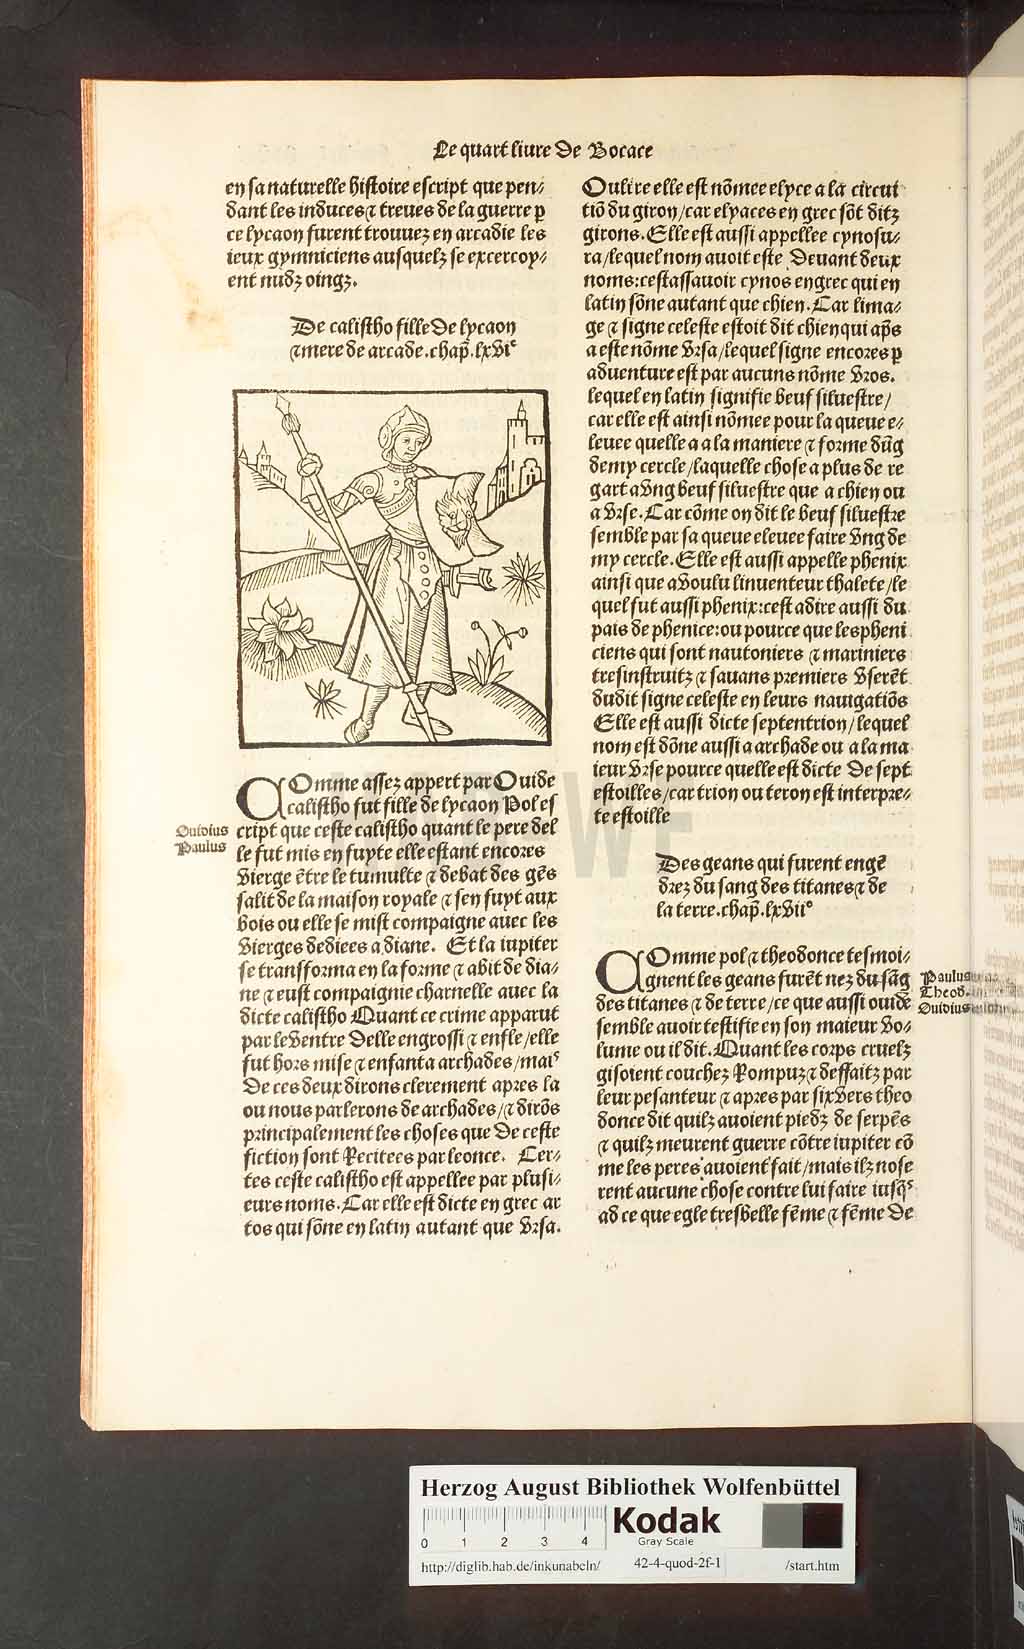 Le quart liure de Bocace
en sa naturelle histoire escript que pen-
dant les induces ⁊ treues de la guerre p̱
ce lycaon furent trouuez en arcadie les
ieux gymniciens ausquelz se excercoy-
ent nudz oingz.
De calistho fille de lycaon
⁊ mere de arcade. chap̄. lxvi^e
COmme assez appert par Ouide
calistho fut fille de lycaon Pol es
cript que ceste calistho quant le pere del
le fut mis en fuyte elle estant encores
vierge ētre le tumulte ⁊ debat des gēs
salit de la maison royale ⁊ sen fuyt aux
bois ou elle se mist compaigne auec les
vierges dediees a diane. Et la iupiter
se transforma en la forme ⁊ abit de dia-
ne ⁊ eust compaignie charnelle auec la
dicte calistho Quant ce crime apparut
par le ventre delle engrossi ⁊ enfle/elle
fut hors mise ⁊ enfanta archades/mai^s
De ces deux dirons clerement apres la
ou nous parlerons de archades/⁊ dirōs
principalement les choses que de ceste
fiction sont recitees par leonce. Cer-
tes ceste calistho est appellee par plusi-
eurs noms. Car elle est dicte en grec ar
tos qui sōne en latin autant que vrsa.
Ouidius
Paulus
Oultre elle est nōmee elyce a la circui
tiō du giron/car elyaces en grec sōt ditz
girons. Elle est aussi appellee cynosu-
ra/lequel nom auoit este deuant deux
noms: cestassauoir cynos en grec qui en
latin sōne autant que chien. Car lima-
ge ⁊ signe celeste estoit dit chien qui ap̄s
a este nōme vrsa/lequel signe encores p̱
aduenture est par aucuns nōme vros.
lequel en latin signifie beuf siluestre/
car elle est ainsi nōmee pour la queue e-
leuee quelle a a la maniere ⁊ forme dūg
demy cercle/laquelle chose a plus de re
gart a vng beuf siluestre que a chien ou
a vrse. Car cōme on dit le beuf siluestre
semble par sa queue eleuee faire vng de
my cercle. Elle est aussi appelle phenix
ainsi que a voulu linuenteur thalete/le
quel fut aussi phenix: cest adire aussi du
pais de phenice: ou pource que les pheni
ciens qui sont nautoniers ⁊ mariniers
tresinstruitz ⁊ sauans premiers vserēt
dudit signe celeste en leurs nauigatiōs
Elle est aussi dicte septentrion/lequel
nom est dōne aussi a archade ou a la ma
ieur vrse pource quelle est dicte de sept
estoilles/car trion ou teron est interpre-
te estoille
Des geans qui furent engē
drez du sang des titanes ⁊ de
la terre. chap̄. lxvii^e
COmme pol ⁊ theodonce tesmoi-
gnent les geans furēt nez du sāg
des titanes ⁊ de terre/ce que aussi ouide
semble auoir testifie en son maieur vo-
lume ou il dit. Quant les corps cruelz
gisoient couchez rompuz ⁊ deffaitz par
leur pesanteur ⁊ apres par six vers theo
donce dit quilz auoient piedz de serpēs
⁊ quilz meurent guerre cōtre iupiter cō
me les peres auoient fait/mais ilz nose
rent aucune chose contre lui faire iusq̄^s
ad ce que egle tresbelle fēme ⁊ fēme de
Paulus
Theod.
Ouidius
Herzog August Bibliothek Wolfenbüttel
0 1 2 3 4
Kodak
Gray Scale
http://diglib.hab.de/inkunabeln/ 42-4-quod-2f-1 /start.htm